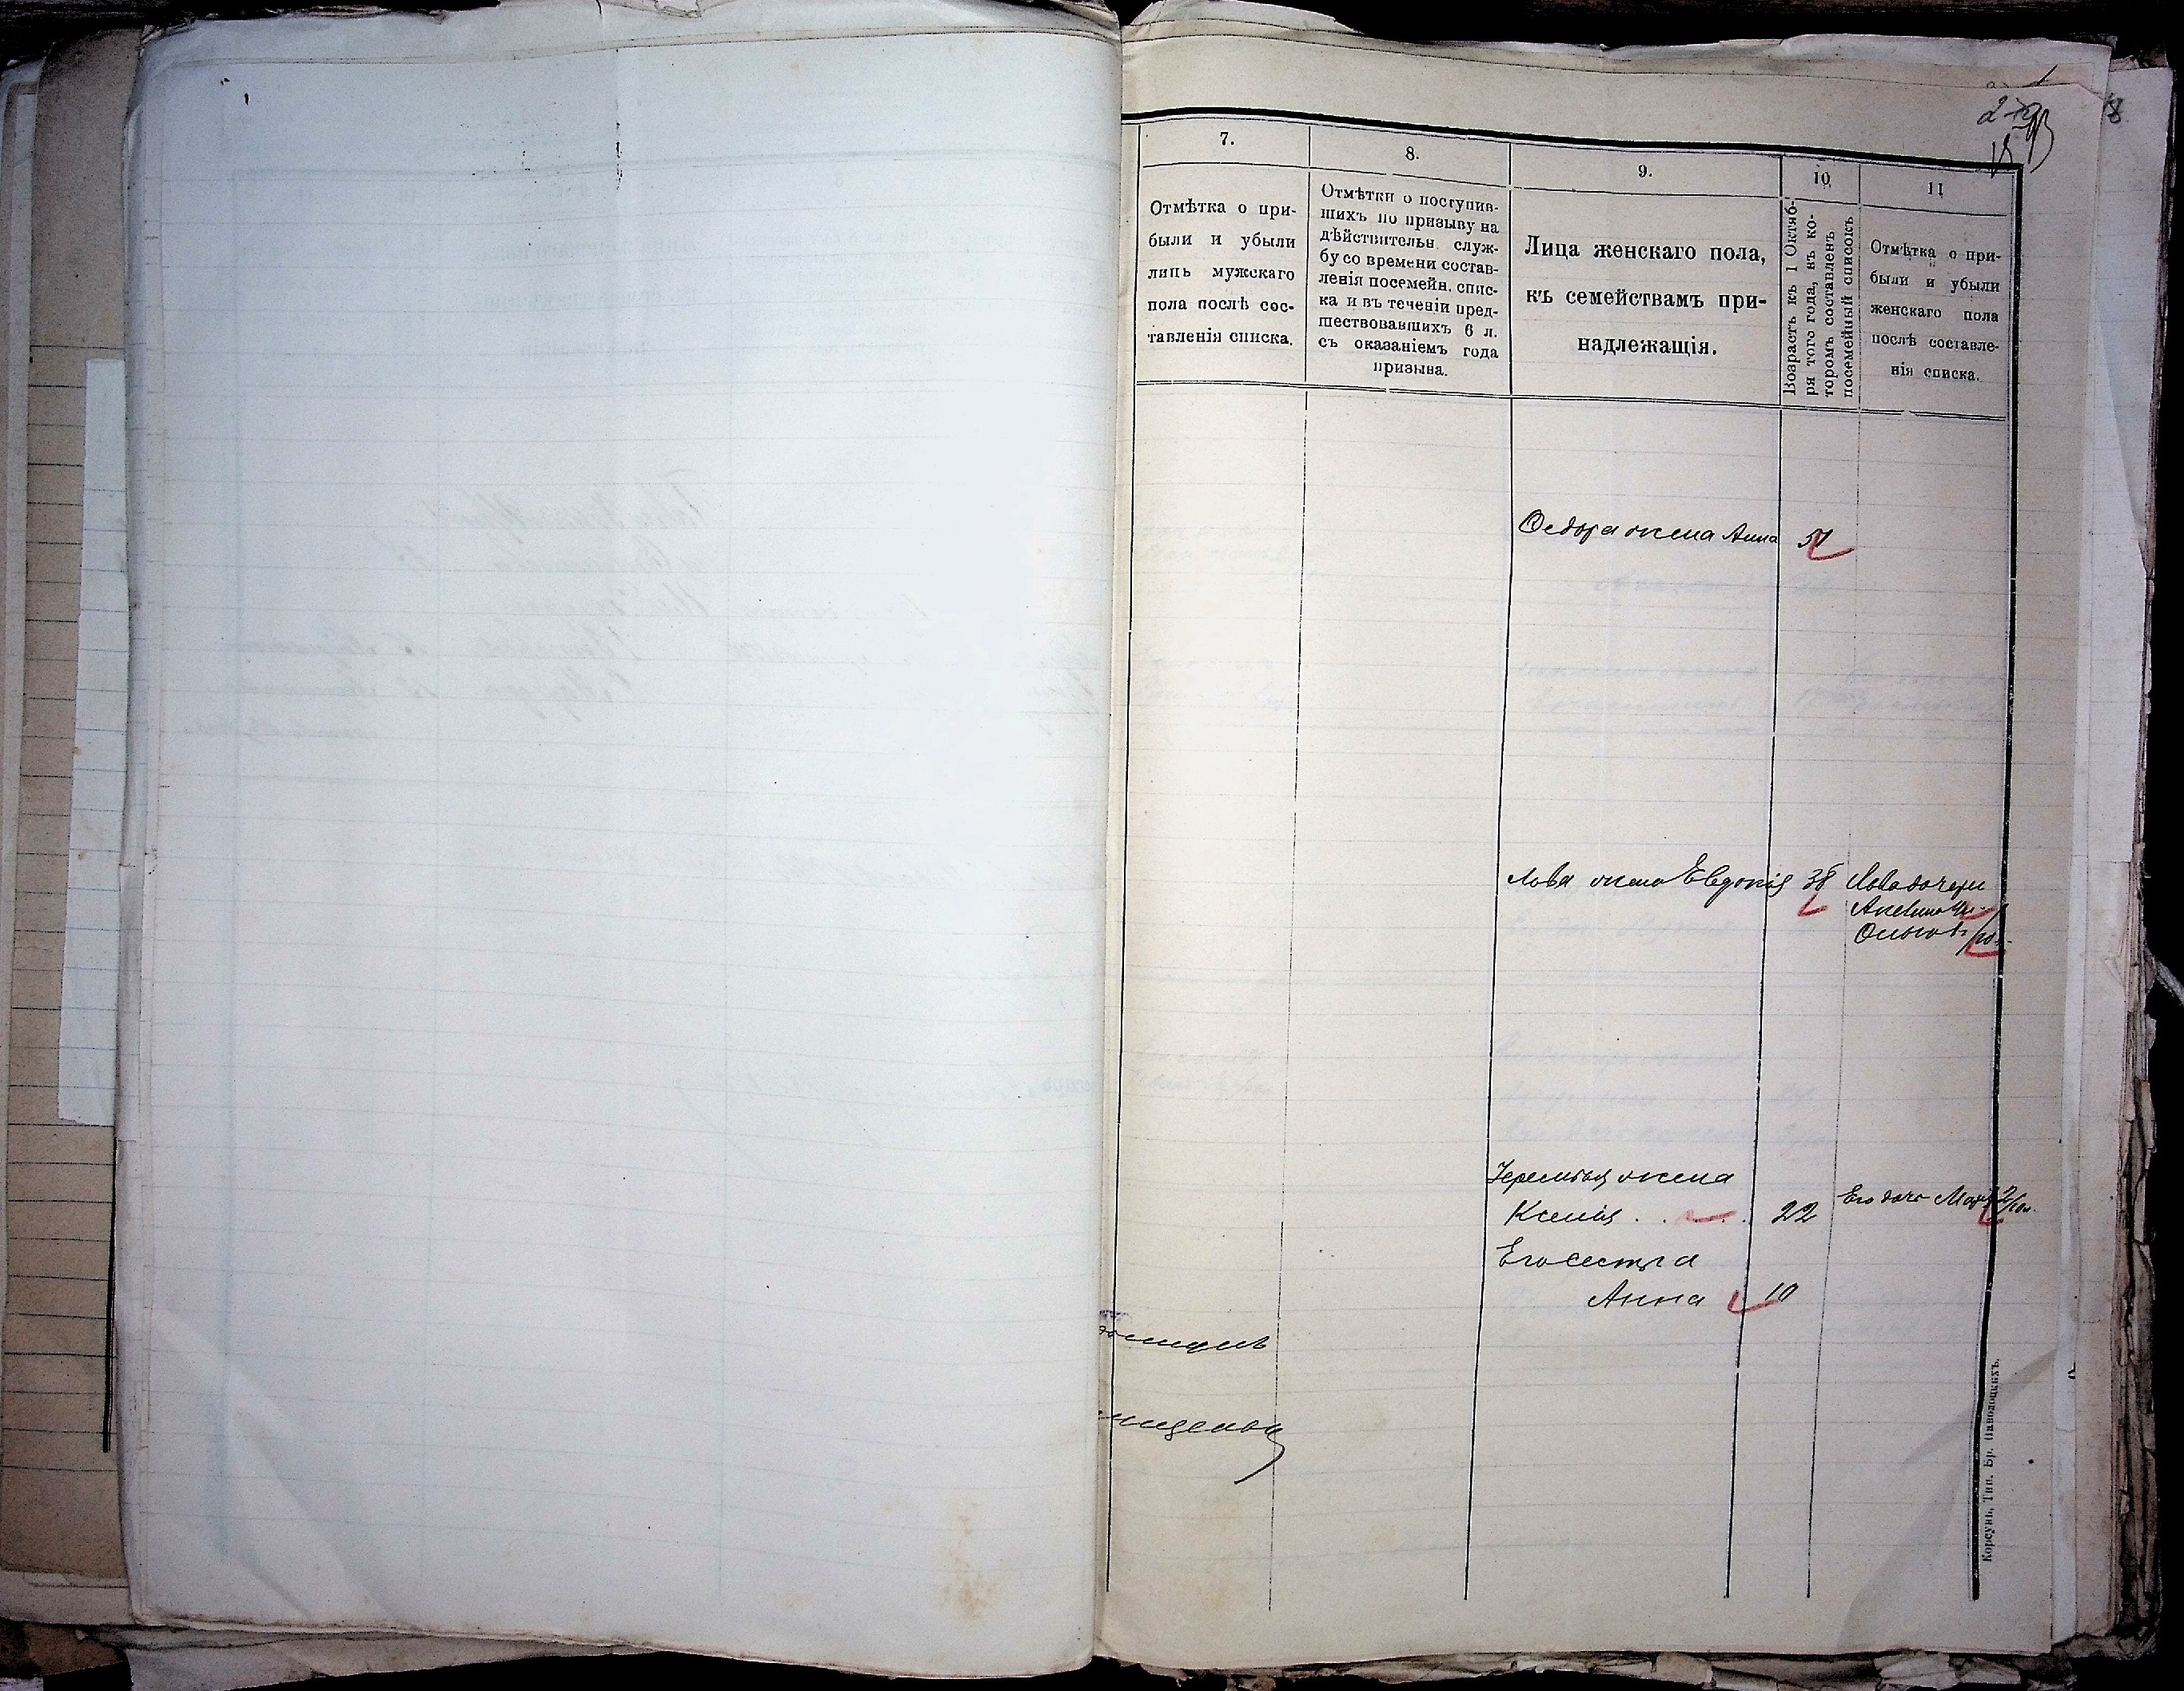 7.
Отмѣтка о при-
были и убыли
лицъ мужскаго
пола послѣ сос-
тавленія списка.
8.
Отмѣтки о поступив-
шихъ по призыву на
дѣйствительн. служ-
бу со времени состав-
ленія посемейн. спис-
ка и въ теченіи пред-
шествовавшихъ 6 л.
съ оказаніемъ года
призыва.
9.
Лица женскаго пола,
къ семействамъ при-
надлежащія.
10
Возрастъ къ 1 Октяб-
ря того года, въ ко-
торомъ составленъ
посемейный списокъ
11
Отмѣтка о при-
были и убыли
женскаго пола
послѣ составле-
нія списка.
Федора жена Анна 51
Лова жена Евдокія 38 Лова дочери
Іереміи жена
Ксенія . . . 22 Его дочь Марія
Его сестра
Анна 10
Корсунь, Тип. Бр. Наволоцкихъ.